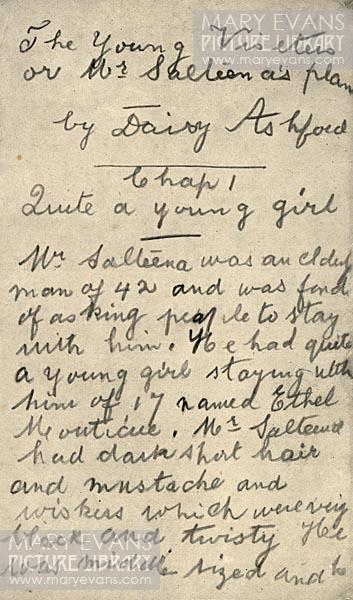 MARY EVANS
PICTURE LIBRARY
www.maryevans.com
The Young Visiters
or Mr Salteena's plan
by Daisy Ashford
Chap 1
Quite a young girl
Mr Salteena was an elderly
man of 42 and was fond
of asking people to stay
with him. He had quite
a young girl staying with
him of 17 named Ethel
Monticue. Mr Salteena
had dark short hair
and mustache and
wiskers which were very
black and twisty He
was middle sized and he
MARY EVANS
PICTURE LIBRARY
www.maryevans.com